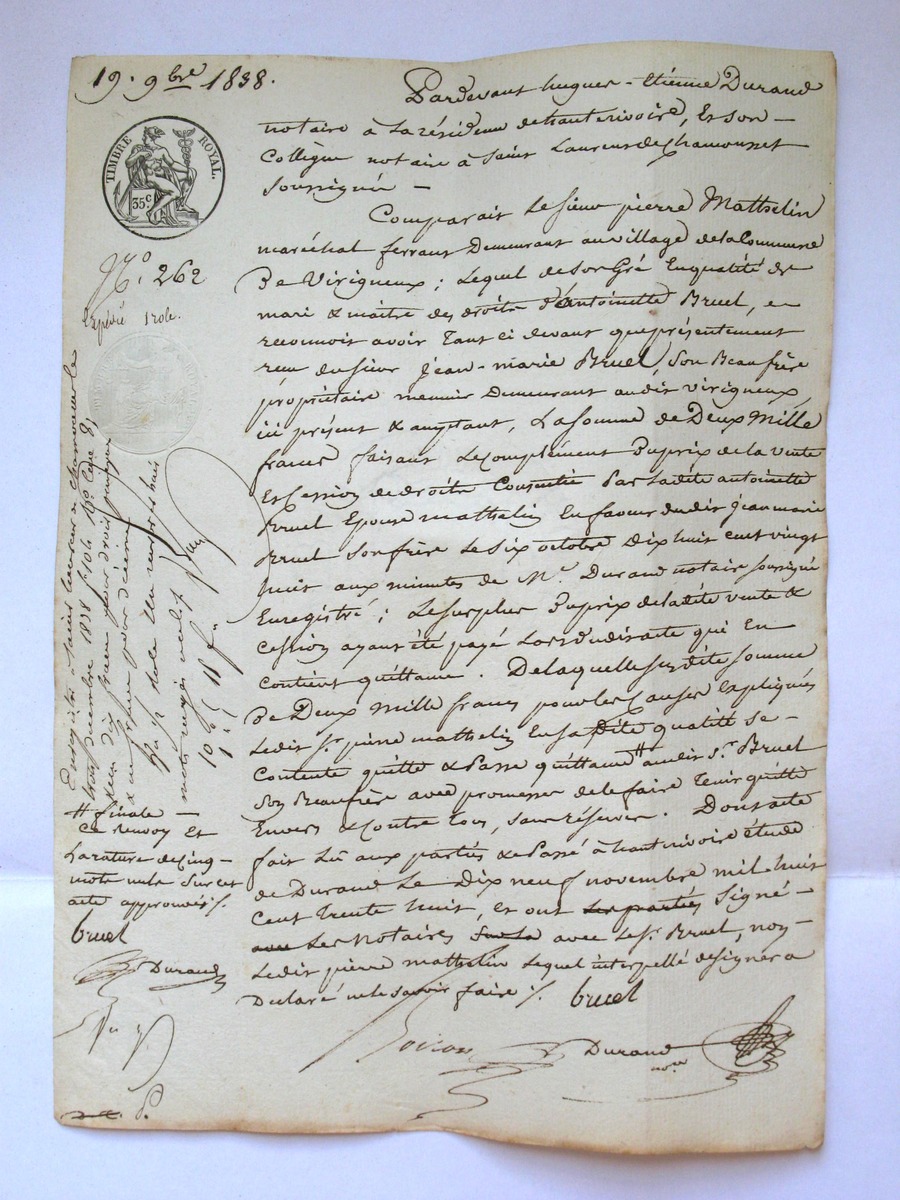 19. 9bre 1838.
TIMBRE ROYAL.
35c
No. 262
Expédié 1 role.
Pardevant hugues-étienne Durand
notaire à la résidence de hauterivoire, Et son
Collègue notaire à Saint Laurent de Chamousset
soussignés
Comparait le sieur pierre Mathelin
maréchal ferrant Demeurant au village de la Commune
De Virigneux; lequel de son Gré En qualité de
mari & maitre des droits d'antoinette Bruel, a
reconnu avoir Tant ci devant que présentement
reçu du sieur jean-marie Bruel, Son Beaufrère
propriétaire meunier Demeurant audit virigneux,
ici présent & acceptant, La somme de Deux Mille
francs faisant le complément Du prix de la vente
Et Cession de droits Consentie Par ladite antoinette
Bruel Epouse mathelin En faveur dudit jean marie
Bruel son frère le six octobre Dix huit cent vingt
huit aux minutes de Me. Durand notaire soussigné
Enregistré; le surplus Du prix de ladite vente &
cession ayant été payé Lors dudit acte qui En
contient quittance. De laquelle susdite somme
De Deux mille francs pour les Causes Expliquées
Ledit sr. pierre mathelin En sa Dite qualité se
Contente quitte & Passe quittance # audit Sr. Bruel
Son Beaufrère avec promesse de le faire Tenir quitte
Envers & Contre tous, sans réserve. Dont acte
fait Lu aux parties & Passé à hauterivoire étude
de Durand le Dix neuf novembre mil huit
Cent trente huit, et ont les parties Signé
avec Les Notaires avec le Sr. Bruel, non
Ledit pierre mathelin Lequel interpellé de signer a
Déclaré ne le savoir faire ./.
bruel
Durand
nore
Enregistré à Saint Laurent de Chamousset le
décembre 1838 fo. 104
dix francs pour droit
& un franc pour décime
# finale
Ce renvoy Et
La rature de Cinq
mots nuls Sur cet
acte approuvés ./.
bruel
Durand